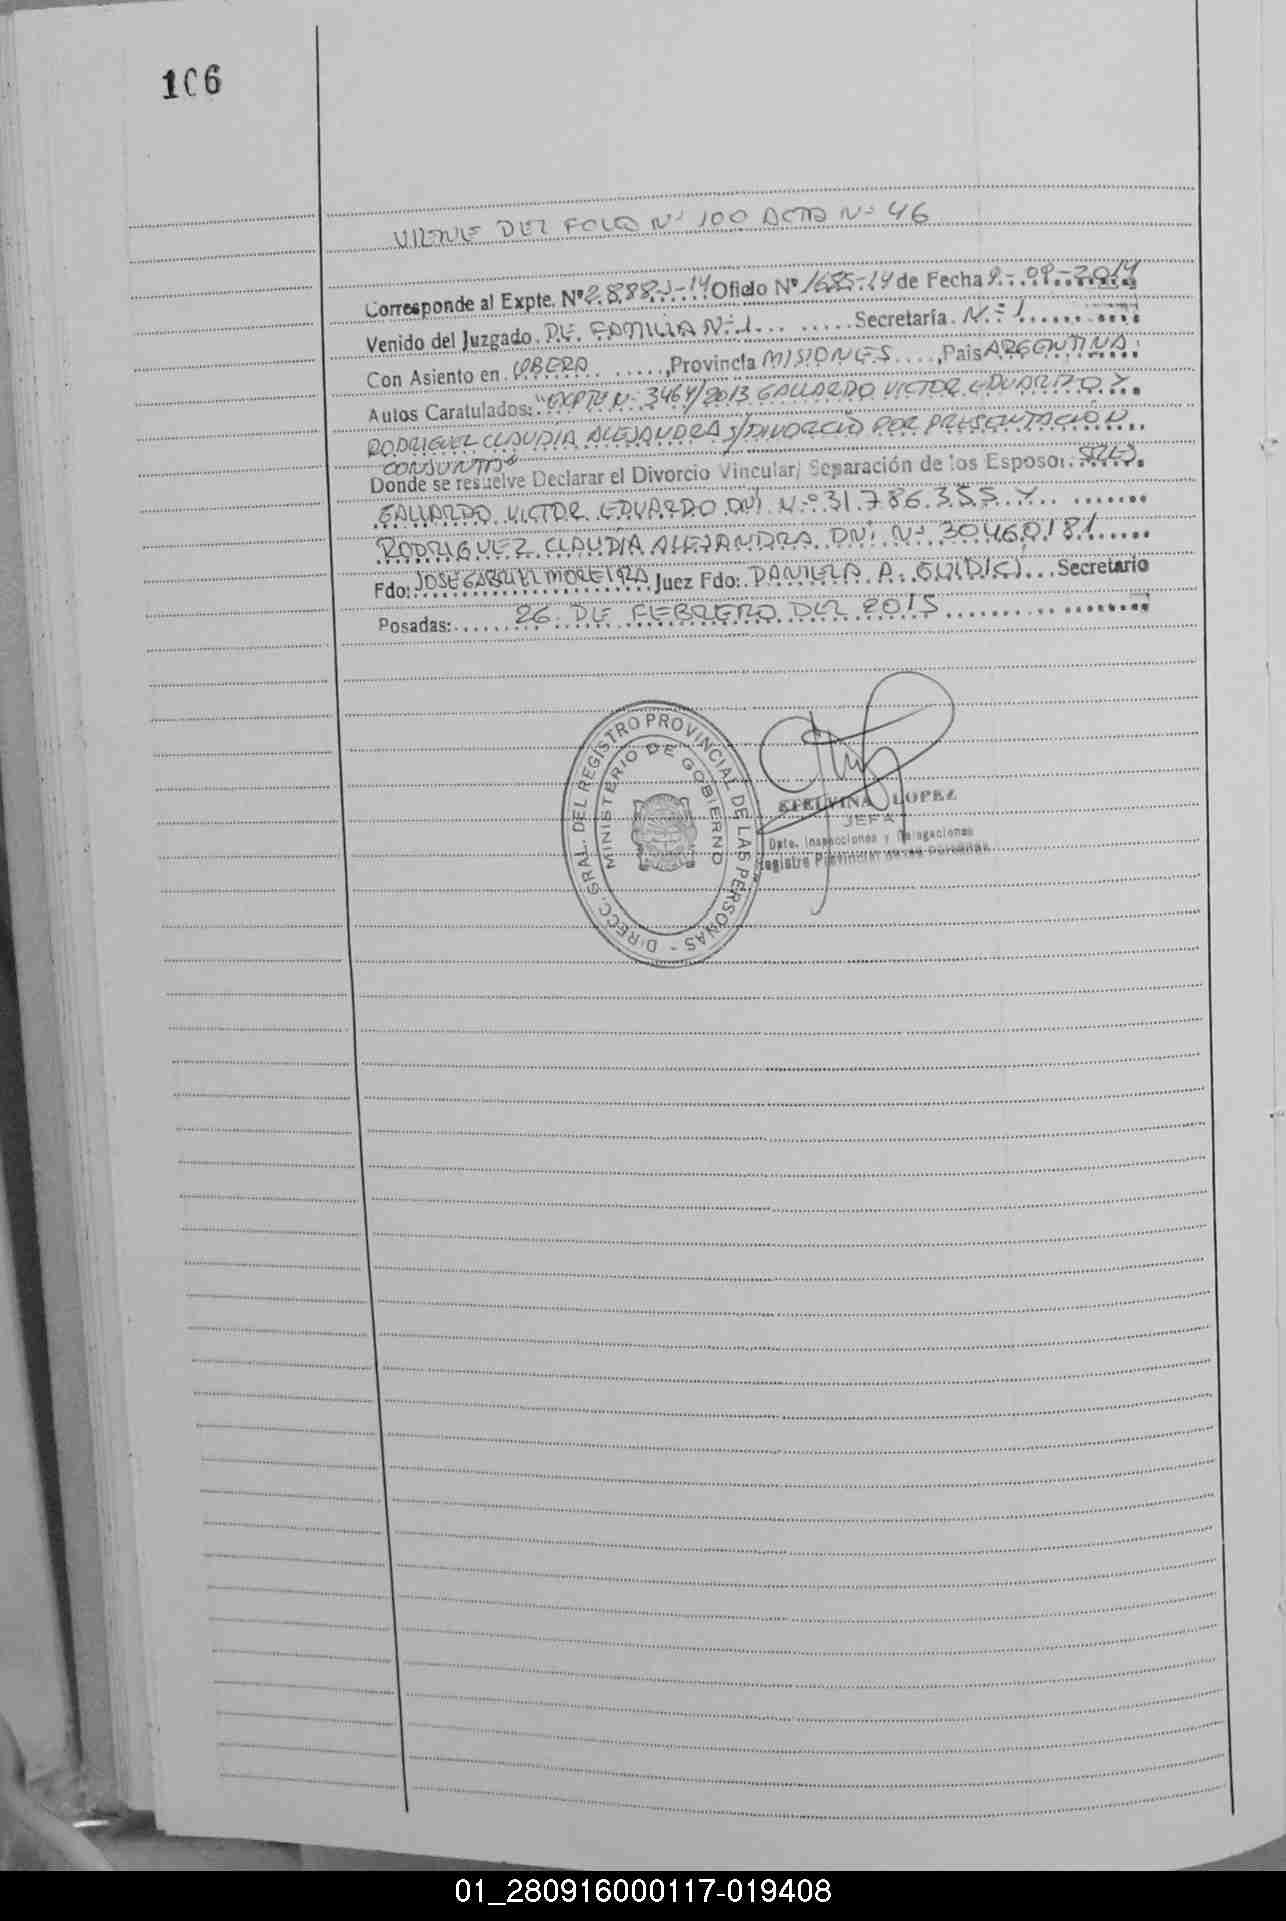 106
VIENE DEL FOLIO Nº 100 ACTA Nº 46
Corresponde al Expte. Nº 2.888-J-14 Oficio Nº 1685-14 de Fecha 9-09-2014
Venido del Juzgado DE FAMILIA Nº 1 Secretaría Nº 1
Con Asiento en OBERA, Provincia MISIONES, País ARGENTINA
Autos Caratulados: "EXPTE Nº 3464/2013 GALLARDO VICTOR EDUARDO Y
RODRIGUEZ CLAUDIA ALEJANDRA S/DIVORCIO POR PRESENTACIÓN
CONJUNTA"
Donde se resuelve Declarar el Divorcio Vincular/ Separación de los Esposos:
GALLARDO VICTOR EDUARDO DNI Nº 31.786.355 Y
RODRIGUEZ CLAUDIA ALEJANDRA DNI Nº 30460181
Fdo: JOSE GABRIEL MOREIRA Juez Fdo: DANIELA A. GUIDICI Secretario
Posadas: 26 DE FEBRERO DEL 2015
DIRECC. GRAL. DEL REGISTRO PROVINCIAL DE LAS PERSONAS -
MINISTERIO DE GOBIERNO
ETELVINA LOPEZ
JEFA
Dpto. Inspecciones y Delegaciones
Registro Provincial de las Personas
01_280916000117-019408